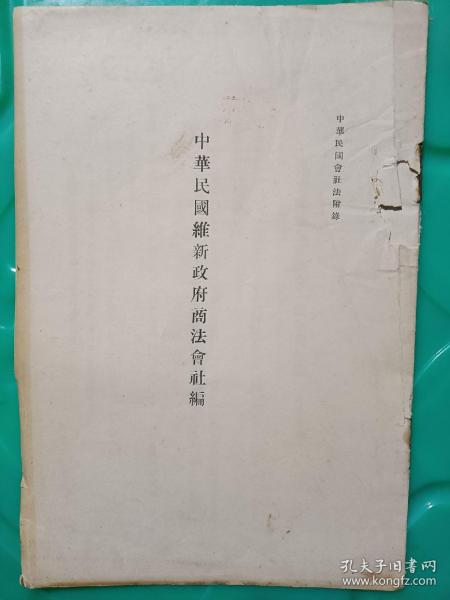 中華民國會社法附錄
中華民國維新政府商法會社編
孔夫子旧书网
www.kongfz.com